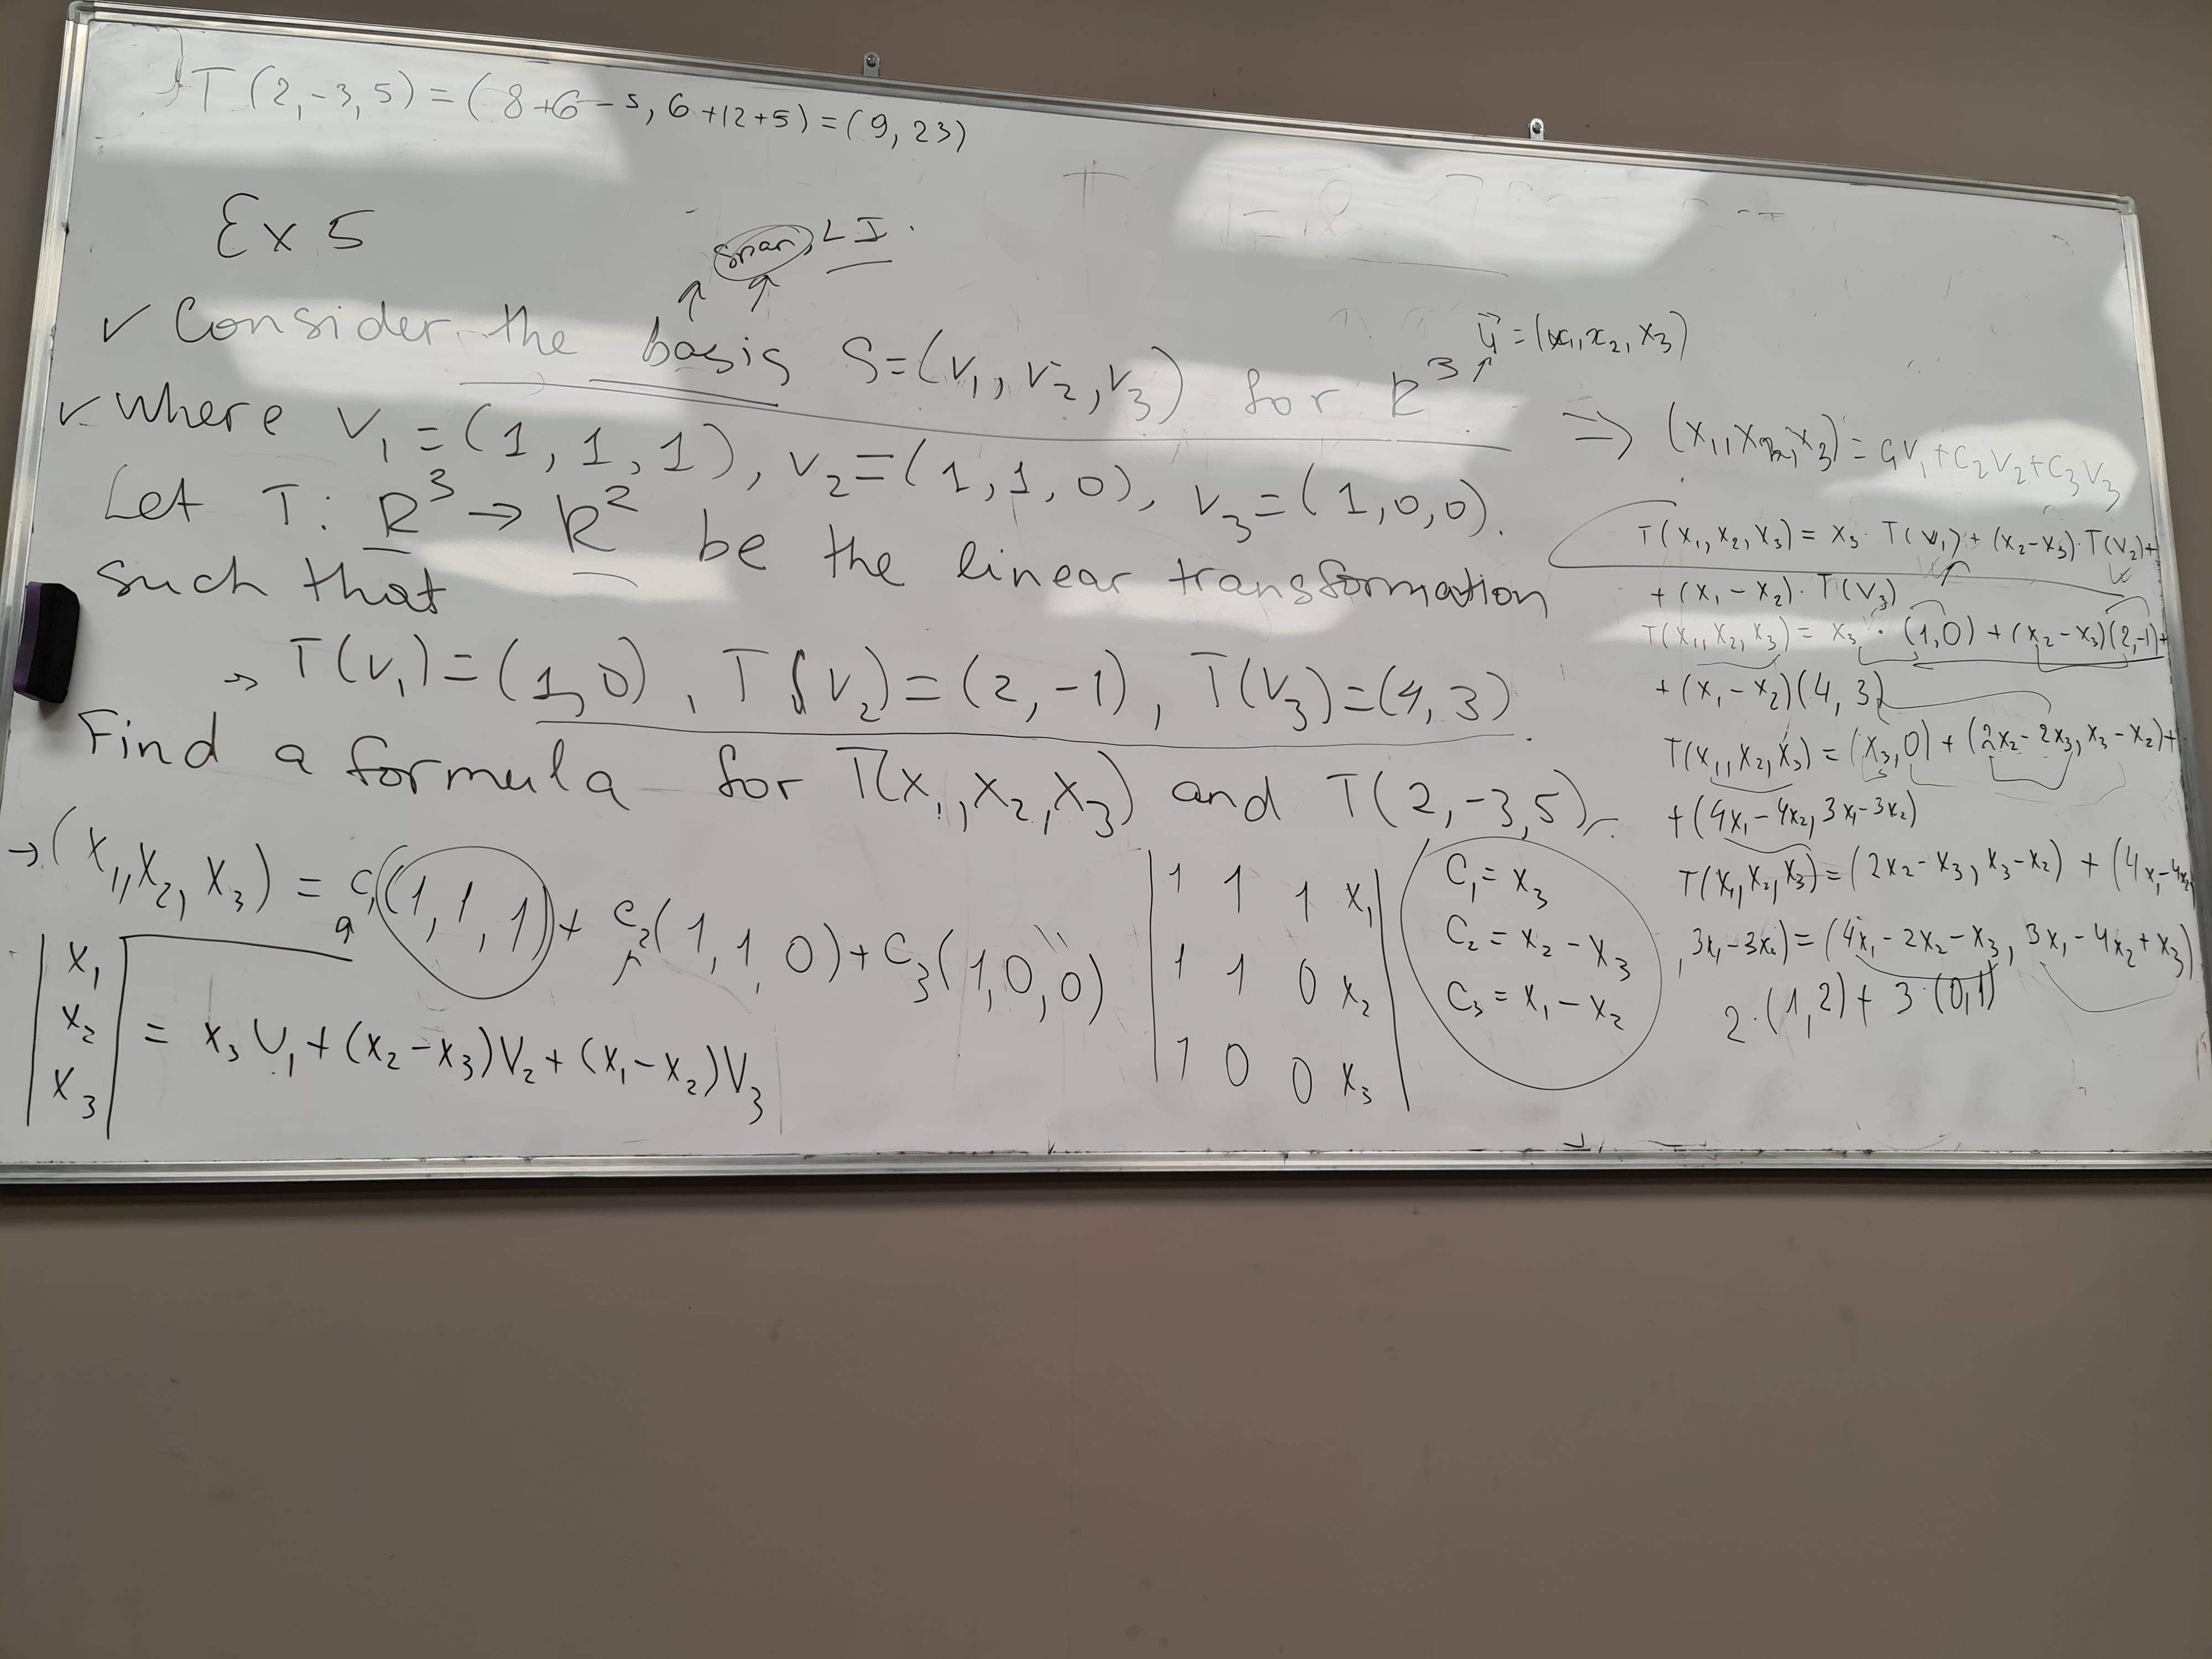 T(2,-3,5)=(8+6-5, 6+12+5)=(9,23)
Ex 5
span, LI.
✓ Consider the basis S=(v₁, v₂, v₃) for R³
✓ where v₁=(1,1,1), v₂=(1,1,0), v₃=(1,0,0).
Let T: R³→R² be the linear transformation
such that
→ T(v₁)=(1,0), T(v₂)=(2,-1), T(v₃)=(4,3).
Find a formula for T(x₁,x₂,x₃) and T(2,-3,5)
→ (x₁,x₂,x₃) = c₁(1,1,1)+c₂(1,1,0)+c₃(1,0,0)
x₁
x₂ = x₃v₁+(x₂-x₃)v₂+(x₁-x₂)v₃
x₃
1 1 1 x₁
1 1 0 x₂
1 0 0 x₃
c₁=x₃
c₂=x₂-x₃
c₃=x₁-x₂
u⃗=(x₁,x₂,x₃)
⇒ (x₁,x₂,x₃)=c₁v₁+c₂v₂+c₃v₃
T(x₁,x₂,x₃)=x₃·T(v₁)+(x₂-x₃)·T(v₂)+
+(x₁-x₂)·T(v₃)
T(x₁,x₂,x₃)=x₃·(1,0)+(x₂-x₃)(2,-1)+
+(x₁-x₂)(4,3)
T(x₁,x₂,x₃)=(x₃,0)+(2x₂-2x₃,x₃-x₂)+
+(4x₁-4x₂,3x₁-3x₂)
T(x₁,x₂,x₃)=(2x₂-x₃,x₃-x₂)+(4x₁-4x₂
,3x₁-3x₂)=(4x₁-2x₂-x₃,3x₁-4x₂+x₃)
2·(1,2)+3·(0,1)